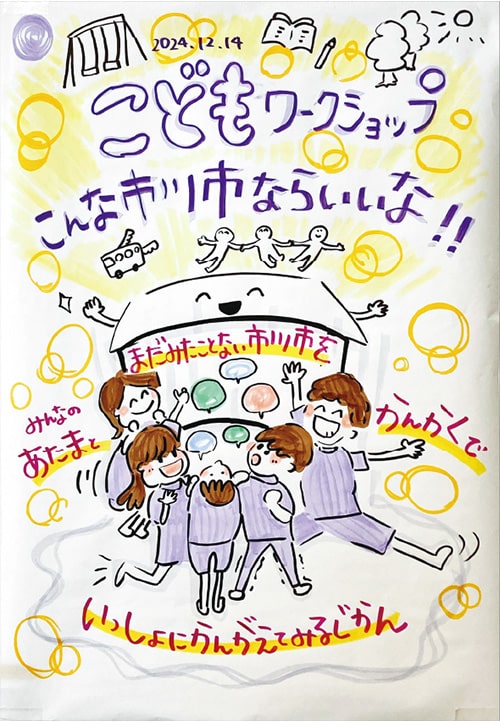 2024.12.14
こどもワークショップ
こんな市川市ならいいな!!
まだみたことない市川市を
みんなの
あたまと
かんかくで
いっしょにかんがえてみるじかん